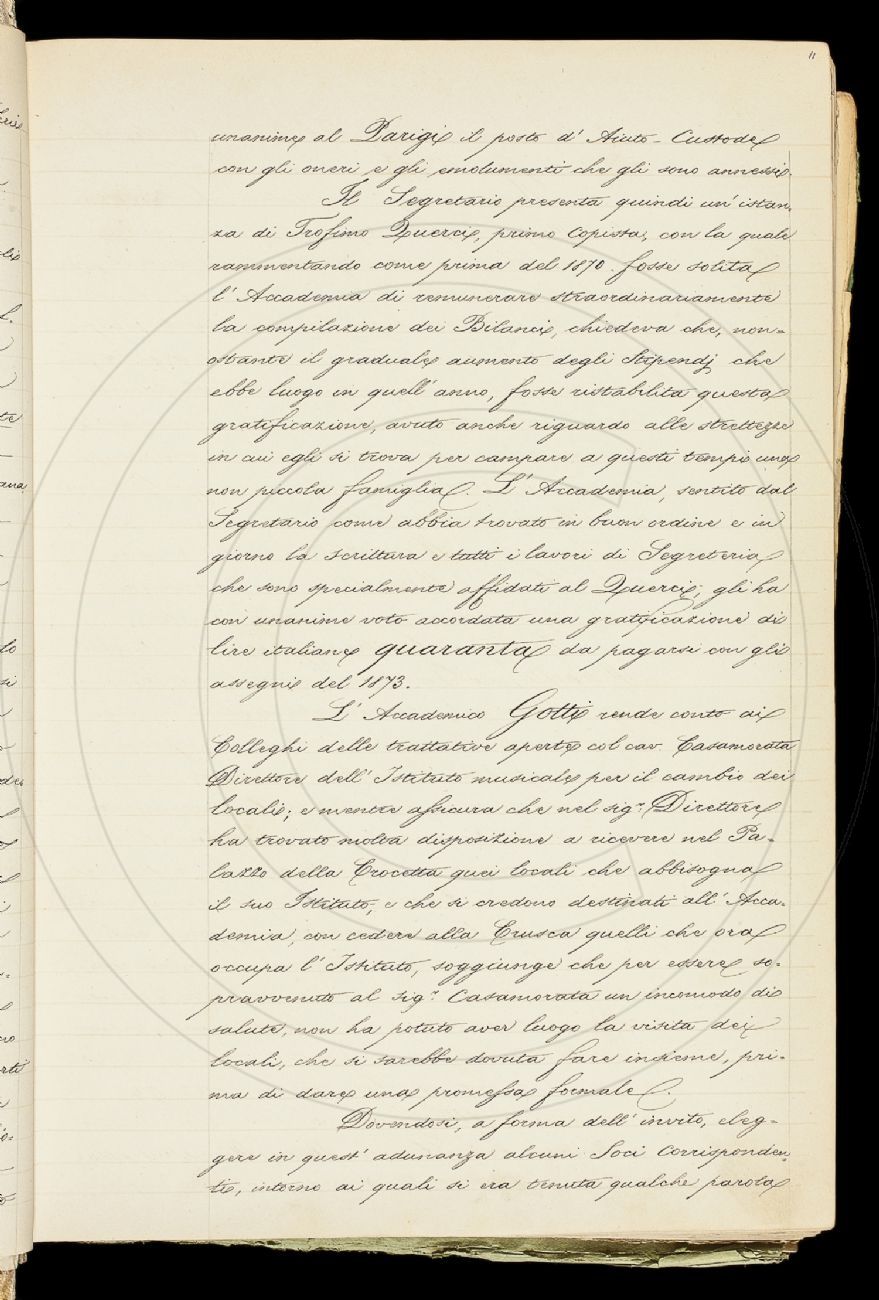 11
unanime al Parigi il posto d' Aiuto-Custode
con gli oneri e gli emolumenti che gli sono annessi.
Il Segretario presenta quindi un' istan-
za di Trofimo Querci, primo copista, con la quale
rammentando come prima del 1870. fosse solita
l' Accademia di remunerare straordinariamente
la compilazione dei Bilanci, chiedeva che, non-
ostante il graduale aumento degli Stipendj che
ebbe luogo in quell' anno, fosse ristabilita questa
gratificazione, avuto anche riguardo alle strettezze
in cui egli si trova per campare a questi tempi una
non piccola famiglia. L' Accademia, sentito dal
Segretario come abbia trovato in buon ordine e in
giorno la scrittura e tutti i lavori di Segreteria
che sono specialmente affidati al Querci; gli ha
con unanime voto accordata una gratificazione di
lire italiane quaranta da pagarsi con gli
assegni del 1873.
L' Accademico Gotti rende conto ai
Colleghi delle trattative aperte col cav. Casamorata
Direttore dell' Istituto musicale per il cambio dei
locali; e mentre assicura che nel sig.r Direttore
ha trovato molta disposizione a ricevere nel Pa-
lazzo della Crocetta quei locali che abbisogna
il suo Istituto, e che si credono destinati all' Acca-
demia, con cedere alla Crusca quelli che ora
occupa l' Istituto, soggiunge che per essere so-
pravvenuto al sig.r Casamorata un incomodo di
salute, non ha potuto aver luogo la visita dei
locali, che si sarebbe dovuta fare insieme, pri-
ma di dare una promessa formale.
Dovendosi, a forma dell' invito, eleg-
gere in quest' adunanza alcuni Soci Corrisponden-
ti, intorno ai quali si era tenuta qualche parola